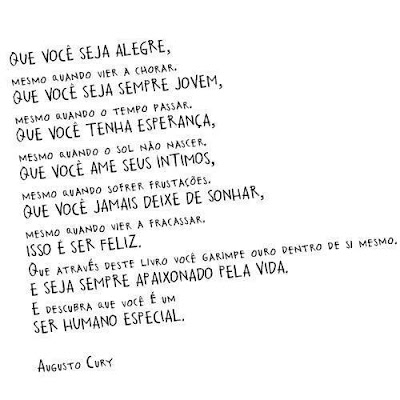 QUE VOCÊ SEJA ALEGRE,
MESMO QUANDO VIER A CHORAR.
QUE VOCÊ SEJA SEMPRE JOVEM,
MESMO QUANDO O TEMPO PASSAR.
QUE VOCÊ TENHA ESPERANÇA,
MESMO QUANDO O SOL NÃO NASCER.
QUE VOCÊ AME SEUS INTIMOS,
MESMO QUANDO SOFRER FRUSTAÇÕES.
QUE VOCÊ JAMAIS DEIXE DE SONHAR,
MESMO QUANDO VIER A FRACASSAR.
ISSO É SER FELIZ.
QUE ATRAVÉS DESTE LIVRO VOCÊ GARIMPE OURO DENTRO DE SI MESMO.
E SEJA SEMPRE APAIXONADO PELA VIDA.
E DESCUBRA QUE VOCÊ É UM
SER HUMANO ESPECIAL.
AUGUSTO CURY